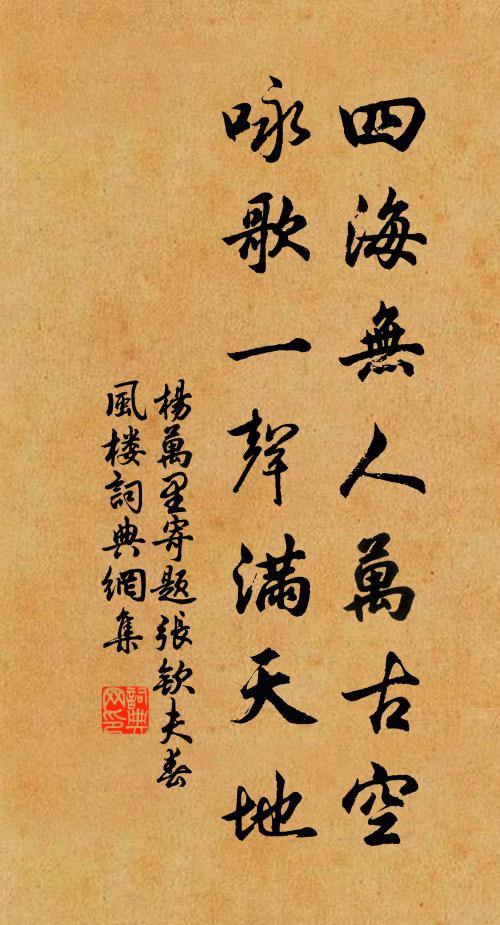 四海無人萬古空
咏歌一聲滿天地
楊萬里寄题張欽夫春
風楼詞典網集
詞典网印